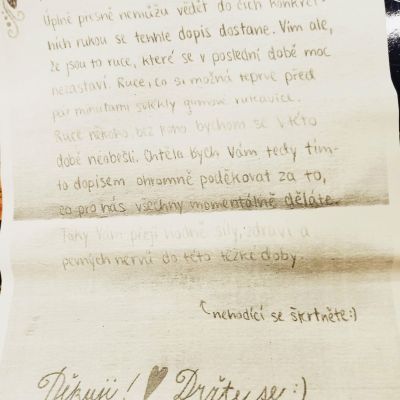 Úplně přesně nemůžu vědět do čích konkrét-
ních rukou se tenhle dopis dostane. Vím ale,
že jsou to ruce, které se v poslední době moc
nezastaví. Ruce, co si možná teprve před
pár minutami svlékly gumové rukavice.
Ruce někoho, bez koho bychom se v této
době neobešli. Chtěla bych Vám tedy tím-
to dopisem ohromně poděkovat za to,
co pro nás všechny momentálně děláte.
Taky Vám přeji hodně síly, zdraví a
pevných nervů do této těžké doby.
nehodící se škrtněte:)
Děkuji! Držte se :)